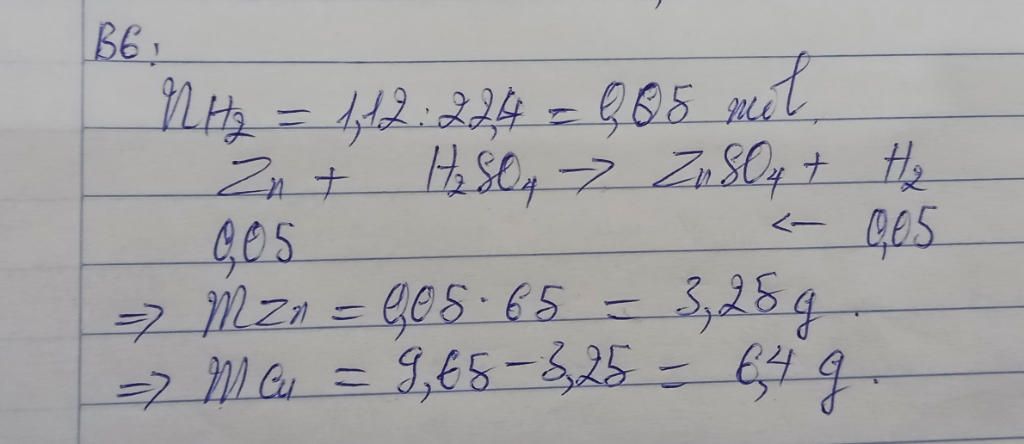 B6:
nH₂ = 1,12 : 22,4 = 0,05 mol.
Zn + H₂SO₄ → ZnSO₄ + H₂
0,05 ← 0,05
⇒ mZn = 0,05 · 65 = 3,25 g.
⇒ mCu = 9,65 - 3,25 = 6,4 g.